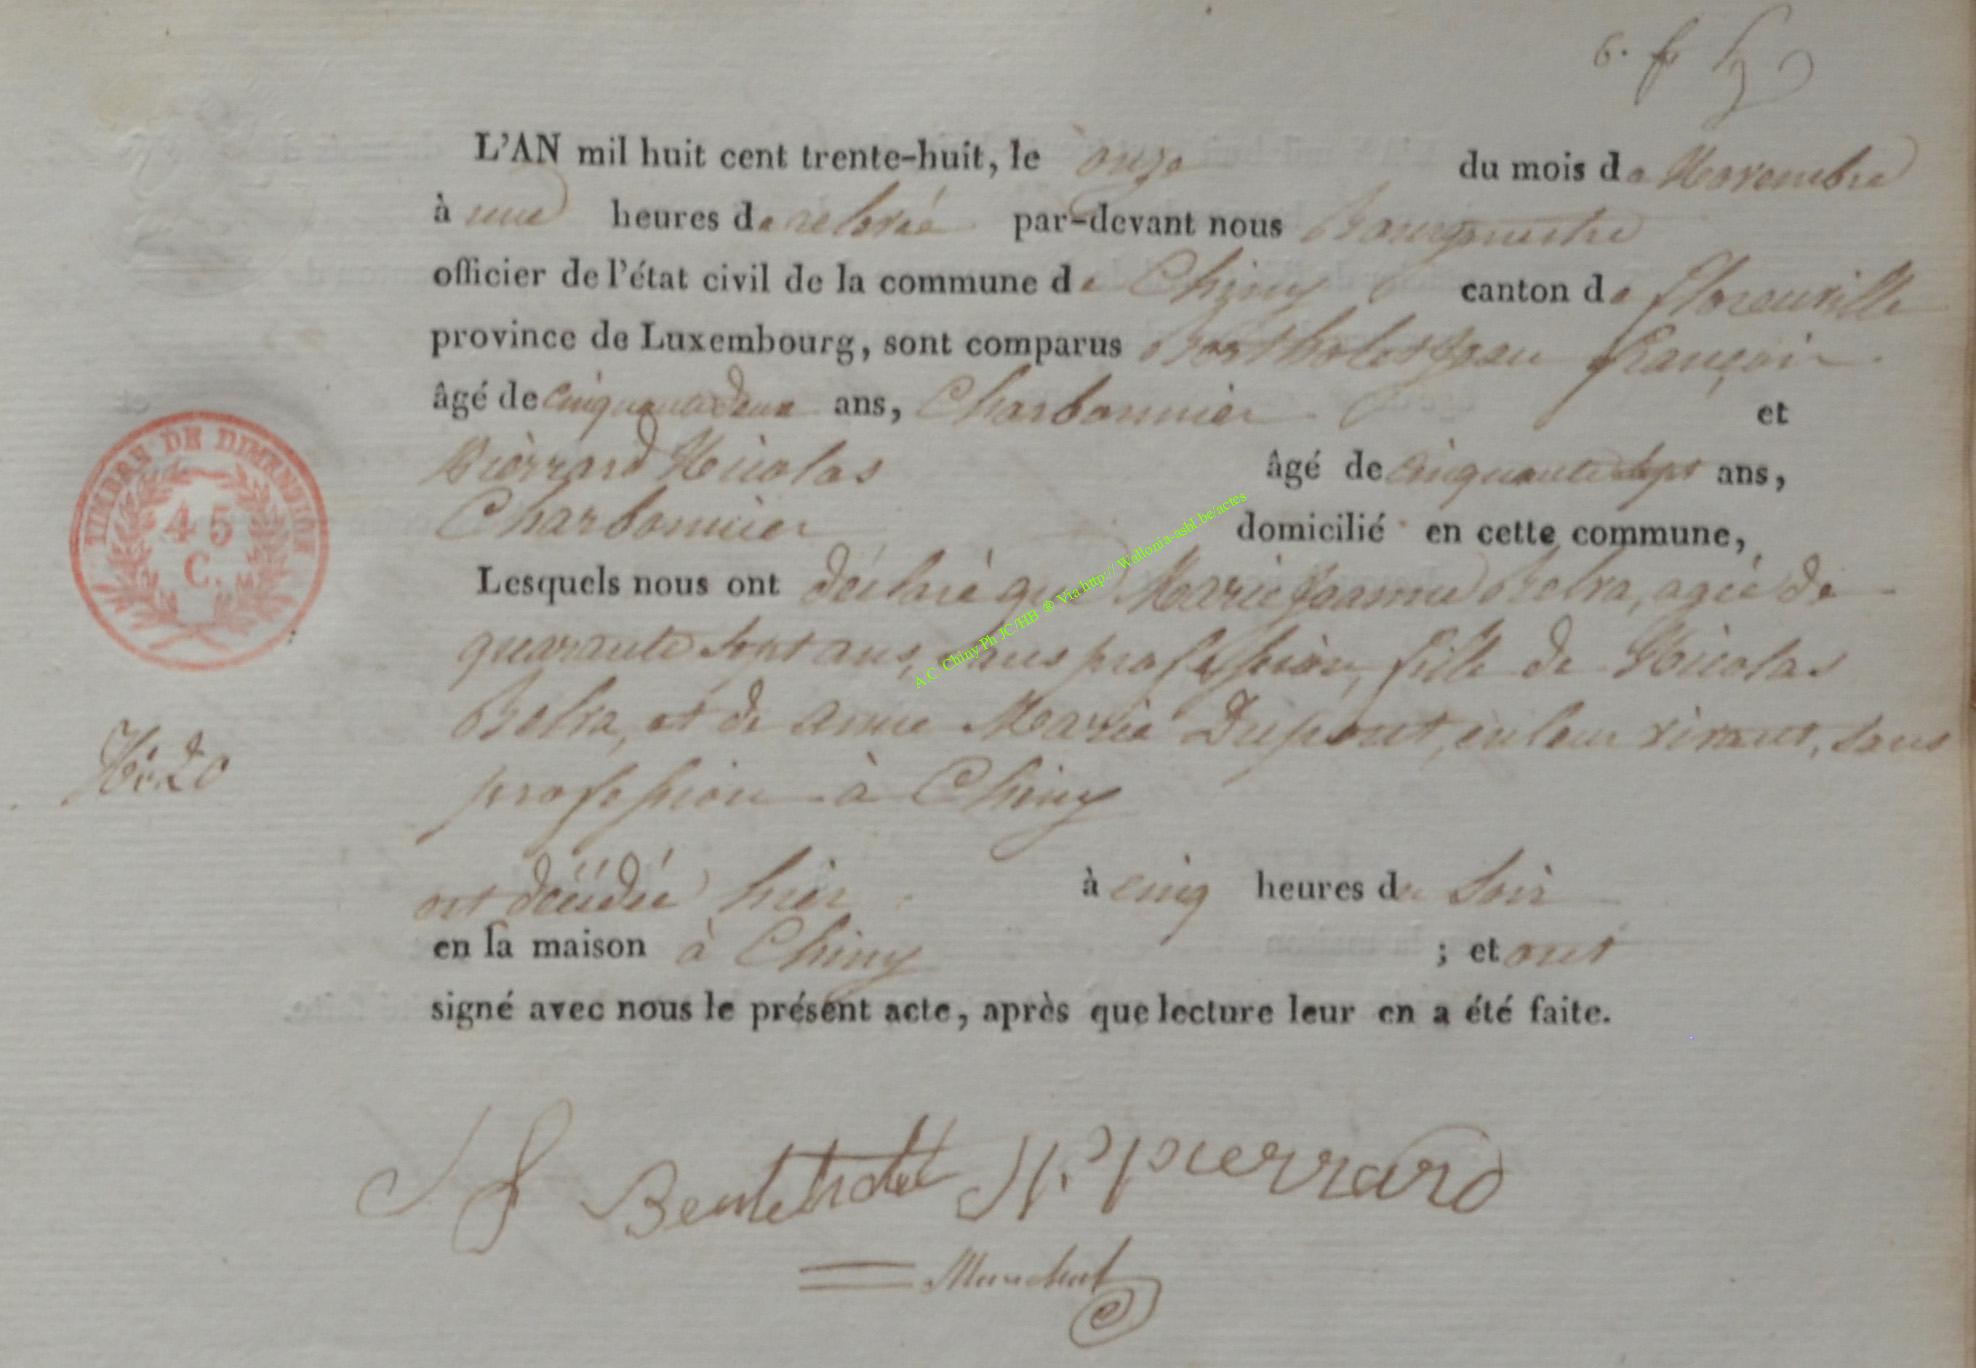 L'AN mil huit cent trente-huit, le onze du mois de Novembre
à une heures de relevée par-devant nous Bourgmestre
officier de l'état civil de la commune de Chiny canton de Florenville
province de Luxembourg, sont comparus Bertholet Jean françois
âgé de cinquante deux ans, Charbonnier et
Pierrard Nicolas âgé de cinquante sept ans,
Charbonnier domicilié en cette commune,
Lesquels nous ont déclaré que Marie Jeanne Belva, agée de
quarante sept ans, sans profession, fille de Nicolas
Belva, et de anne Marie Dupont, en leur vivant, sans
profession à Chiny
est décédée hier à cinq heures du Soir
en la maison à Chiny ; et ont
signé avec nous le présent acte, après que lecture leur en a été faite.
TIMBRE DE DIMENSION
45
C.
No. 20
A.C. Chiny Ph JC/HB ® Via http:// Wallonia-asbl.be/actes
J f Bertholet N. pierrard